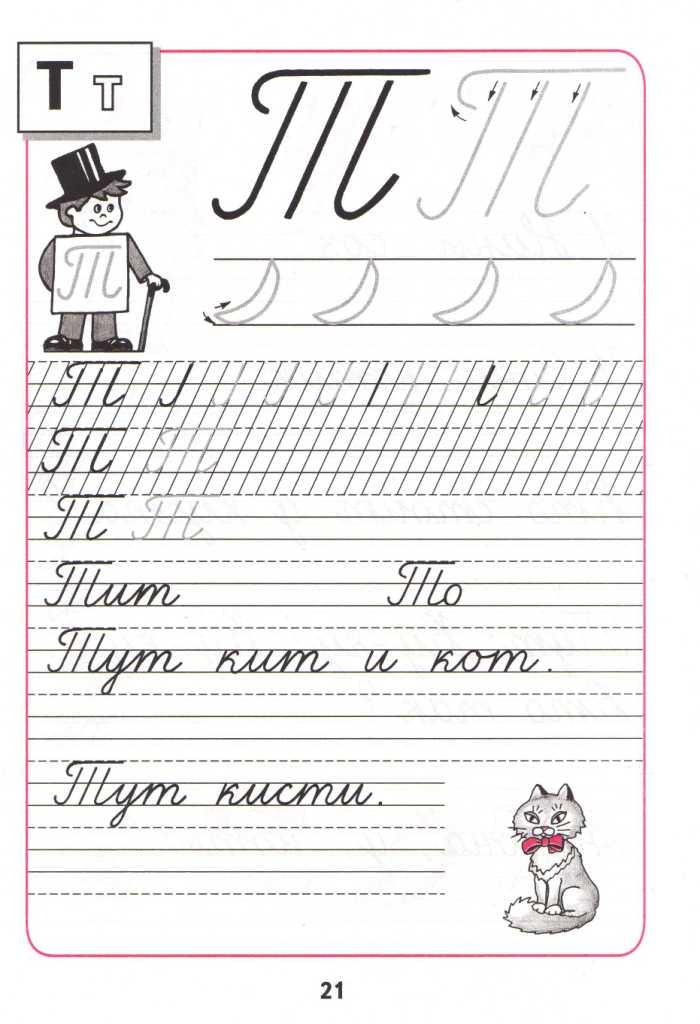 Т т
Т Т
Т
Т
Т Т
Т Т
Тит То
Тут кит и кот.
Тут кисти.
21